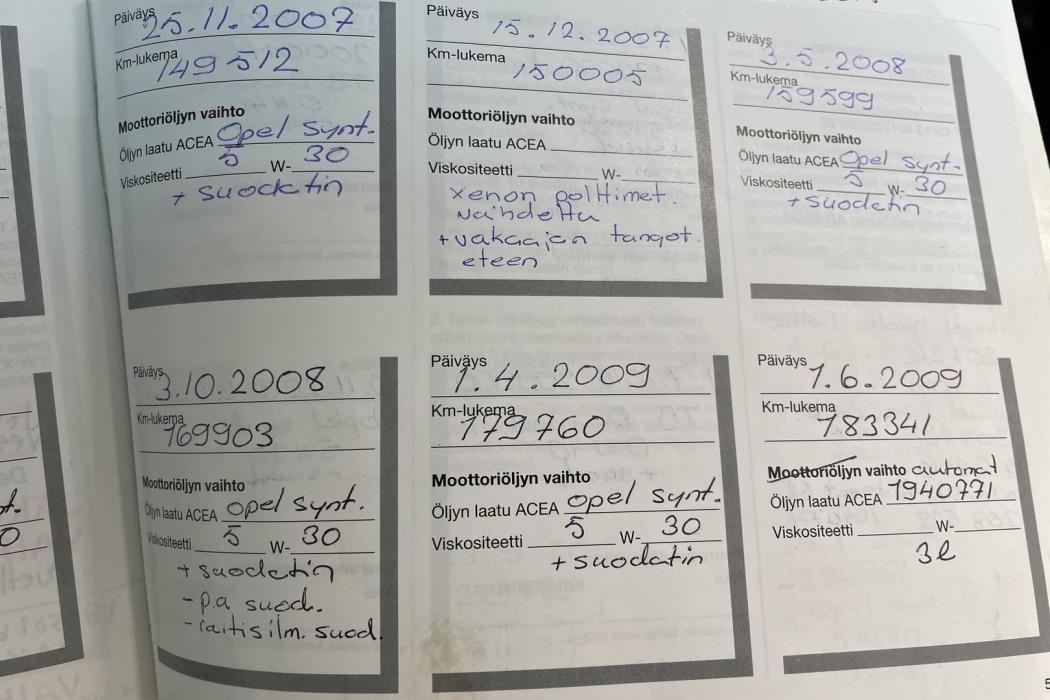 Päiväys 25.11.2007
Km-lukema 149512
Moottoriöljyn vaihto
Öljyn laatu ACEA Opel Synt.
Viskositeetti 5 W- 30
+ suodatin
Päiväys 15.12.2007
Km-lukema 150005
Moottoriöljyn vaihto
Öljyn laatu ACEA
Viskositeetti W-
xenon polttimet
vaihdettu
+ vakaajan tangot
eteen
Päiväys 3.5.2008
Km-lukema 159599
Moottoriöljyn vaihto
Öljyn laatu ACEA Opel synt.
Viskositeetti 5 W- 30
+ suodatin
Päiväys 3.10.2008
Km-lukema 169903
Moottoriöljyn vaihto
Öljyn laatu ACEA opel synt.
Viskositeetti 5 W- 30
+ suodatin
- p.a suod.
- raitisilm. suod.
Päiväys 1.4.2009
Km-lukema 179760
Moottoriöljyn vaihto
Öljyn laatu ACEA opel synt.
Viskositeetti 5 W- 30
+ suodatin
Päiväys 1.6.2009
Km-lukema 183341
Moottoriöljyn vaihto automat
Öljyn laatu ACEA 1940771
Viskositeetti W-
3l
5